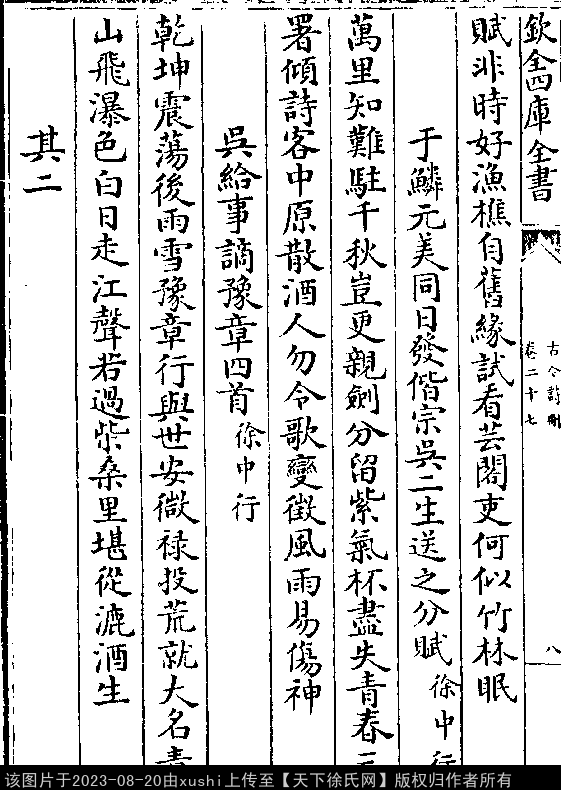 欽定四庫全書
古今詩刪
卷二十七
八
賦非時好漁樵自舊緣試看芸閣吏何似竹林眠
于鱗元美同日發偕宗吳二生送之分賦 徐中行
萬里知難駐千秋豈更親劍分留紫氣杯盡失青春三
署傾詩客中原散酒人勿令歌變徵風雨易傷神
吳給事謫豫章四首 徐中行
乾坤震蕩後雨雪豫章行與世安微祿投荒就大名青
山飛瀑色白日走江聲若過柴桑里堪從漉酒生
其二
该图片于2023-08-20由xushi上传至【天下徐氏网】版权归作者所有